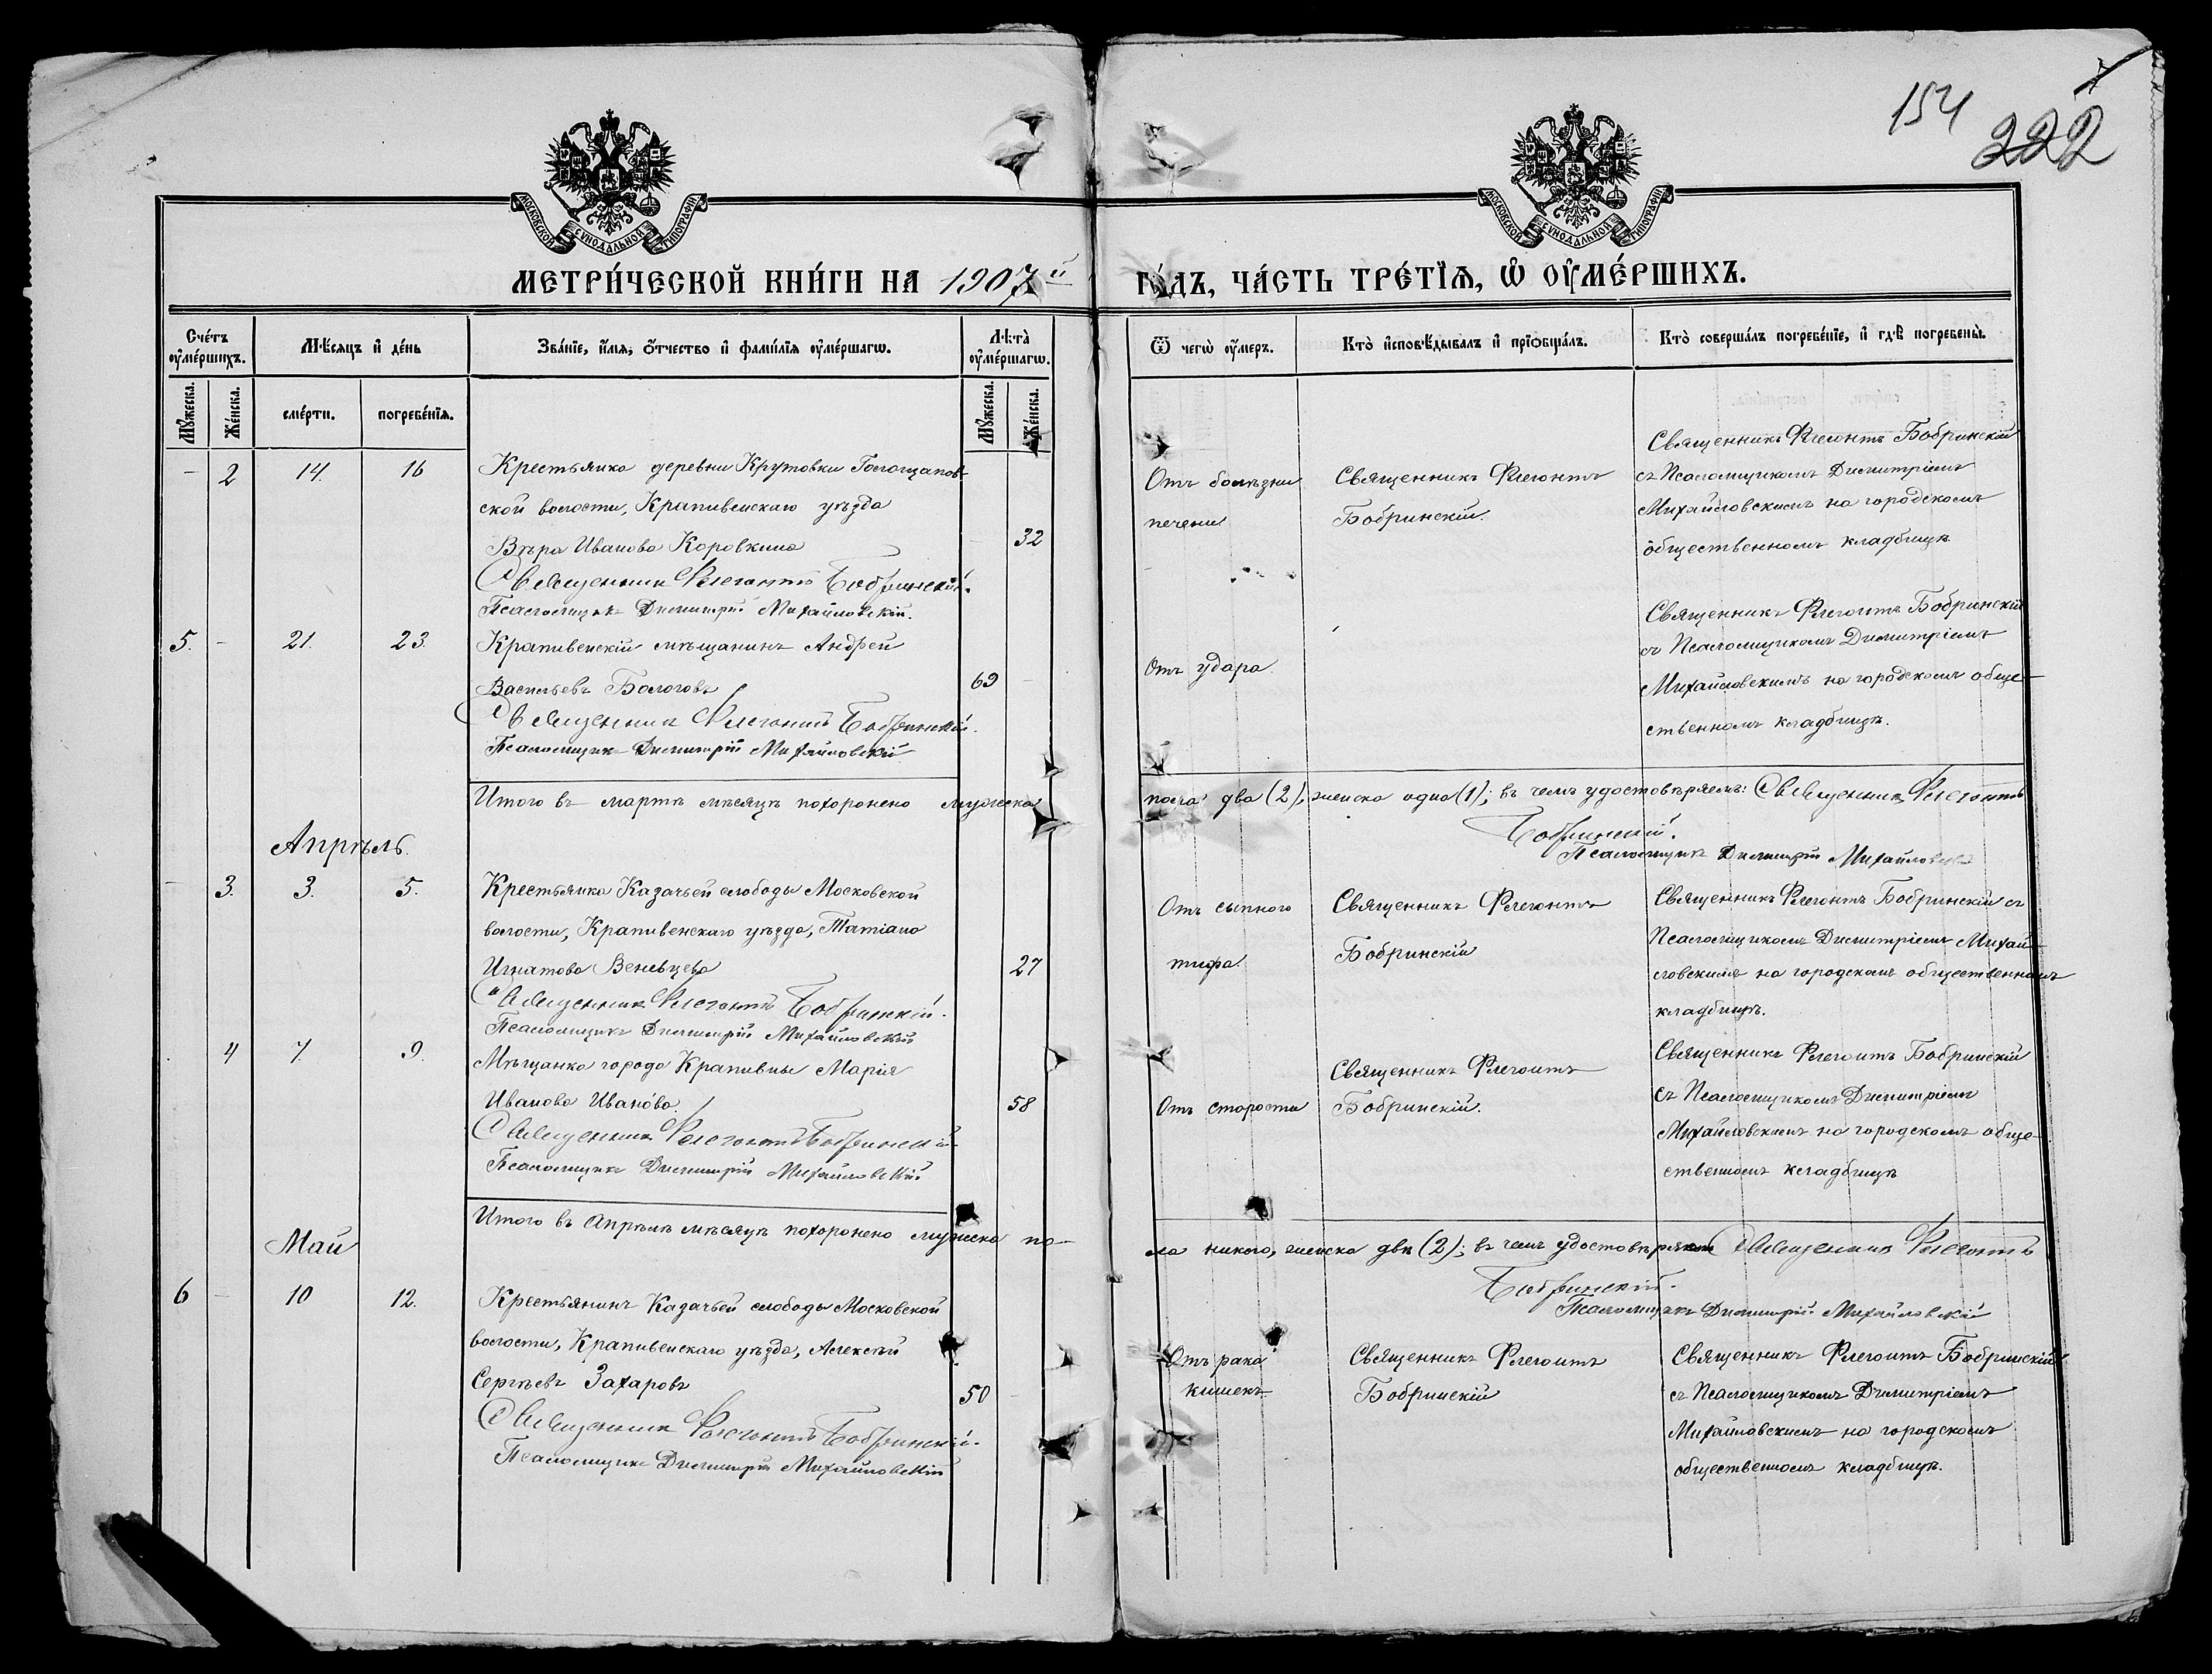 154
222
МОСКОВСКОЙ СѴНОДАЛЬНОЙ ТИПОГРАФІИ
МОСКОВСКОЙ СѴНОДАЛЬНОЙ ТИПОГРАФІИ
МЕТРИ́ЧЕСКОЙ КНИ́ГИ НА 1907й ГО́ДЪ, ЧА́СТЬ ТРЕ́ТІѦ, Ѡ҆ ОУ҆МЕ́РШИХЪ.
Сче́тъ оу҆ме́ршихъ.
Мѣ́сяцъ и҆ де́нь
Зва́нїе, и҆́мя, о҆́тчество и҆ фами́лїя оу҆ме́ршагѡ.
Лѣ́та оу҆ме́ршагѡ.
Ѿ чегѡ̀ оу҆́меръ.
Кто̀ и҆сповѣ́дывалъ и҆ прїѡбща́лъ.
Кто̀ соверша́лъ погребе́нїе, и҆ гдѣ̀ погребены̀.
Мꙋ́жеска.
Же́нска.
сме́рти.
погребе́нїя.
Мꙋ́жеска.
Же́нска.
- 2 14. 16 Крестьянка деревни Крутовки Голощапов-
ской волости, Крапивенскаго уѣзда
Вѣра Иванова Коровкина - 32
Священникъ Флегонтъ Бобринскій.
Псаломщикъ Димитрій Михайловскій.
Отъ болѣзни
печени
Священникъ Флегонтъ
Бобринскій.
Священникъ Флегонтъ Бобринскій
съ Псаломщикомъ Димитріемъ
Михайловскимъ на городскомъ
общественномъ кладбищѣ
5. - 21. 23. Крапивенскій мѣщанинъ Андрей
Васильевъ Бологовъ 69 -
Священникъ Флегонтъ Бобринскій.
Псаломщикъ Димитрій Михайловскій
Отъ удара
Священникъ Флегонтъ Бобринскій
съ Псаломщикомъ Димитріемъ
Михайловскимъ на городскомъ обще-
ственномъ кладбищѣ.
Итого въ мартѣ мѣсяцѣ похоронено мужеска пола два (2), женска одна (1); въ чемъ удостовѣряемъ: Священникъ Флегонтъ
Бобринскій.
Псаломщикъ Димитрій Михайловскій
Апрѣль.
- 3. 3. 5. Крестьянка Казачьей слободы Московской
волости, Крапивенскаго уѣзда, Татіана
Игнатова Веневцева 27
Священникъ Флегонтъ Бобринскій.
Псаломщикъ Димитрій Михайловскій
Отъ сыпного
тифа.
Священникъ Флегонтъ
Бобринскій
Священникъ Флегонтъ Бобринскій съ
Псаломщикомъ Димитріемъ Михай-
ловскимъ на городскомъ общественномъ
кладбищѣ.
4 7. 9. Мѣщанка города Крапивны Марія
Иванова Иванова. 58
Священникъ Флегонтъ Бобринскій
Псаломщикъ Димитрій Михайловскій.
Отъ старости
Священникъ Флегонтъ
Бобринскій.
Священникъ Флегонтъ Бобринскій
съ Псаломщикомъ Димитріемъ
Михайловскимъ на городскомъ обще-
ственномъ кладбищѣ
Итого въ Апрѣлѣ мѣсяцѣ похоронено мужеска по-ла никого, женска двѣ (2); въ чемъ удостовѣряемъ Священникъ Флегонтъ
Бобринскій.
Псаломщикъ Димитрій Михайловскій
Май
6 - 10 12. Крестьянинъ Казачьей слободы Московской
волости, Крапивенскаго уѣзда, Алексѣй
Сергѣевъ Захаровъ 50 -
Священникъ Флегонтъ Бобринскій.
Псаломщикъ Димитрій Михайловскій
Отъ рака
кишекъ
Священникъ Флегонтъ
Бобринскій
Священникъ Флегонтъ Бобринскій
съ Псаломщикомъ Димитріемъ
Михайловскимъ на городскомъ
общественномъ кладбищѣ.